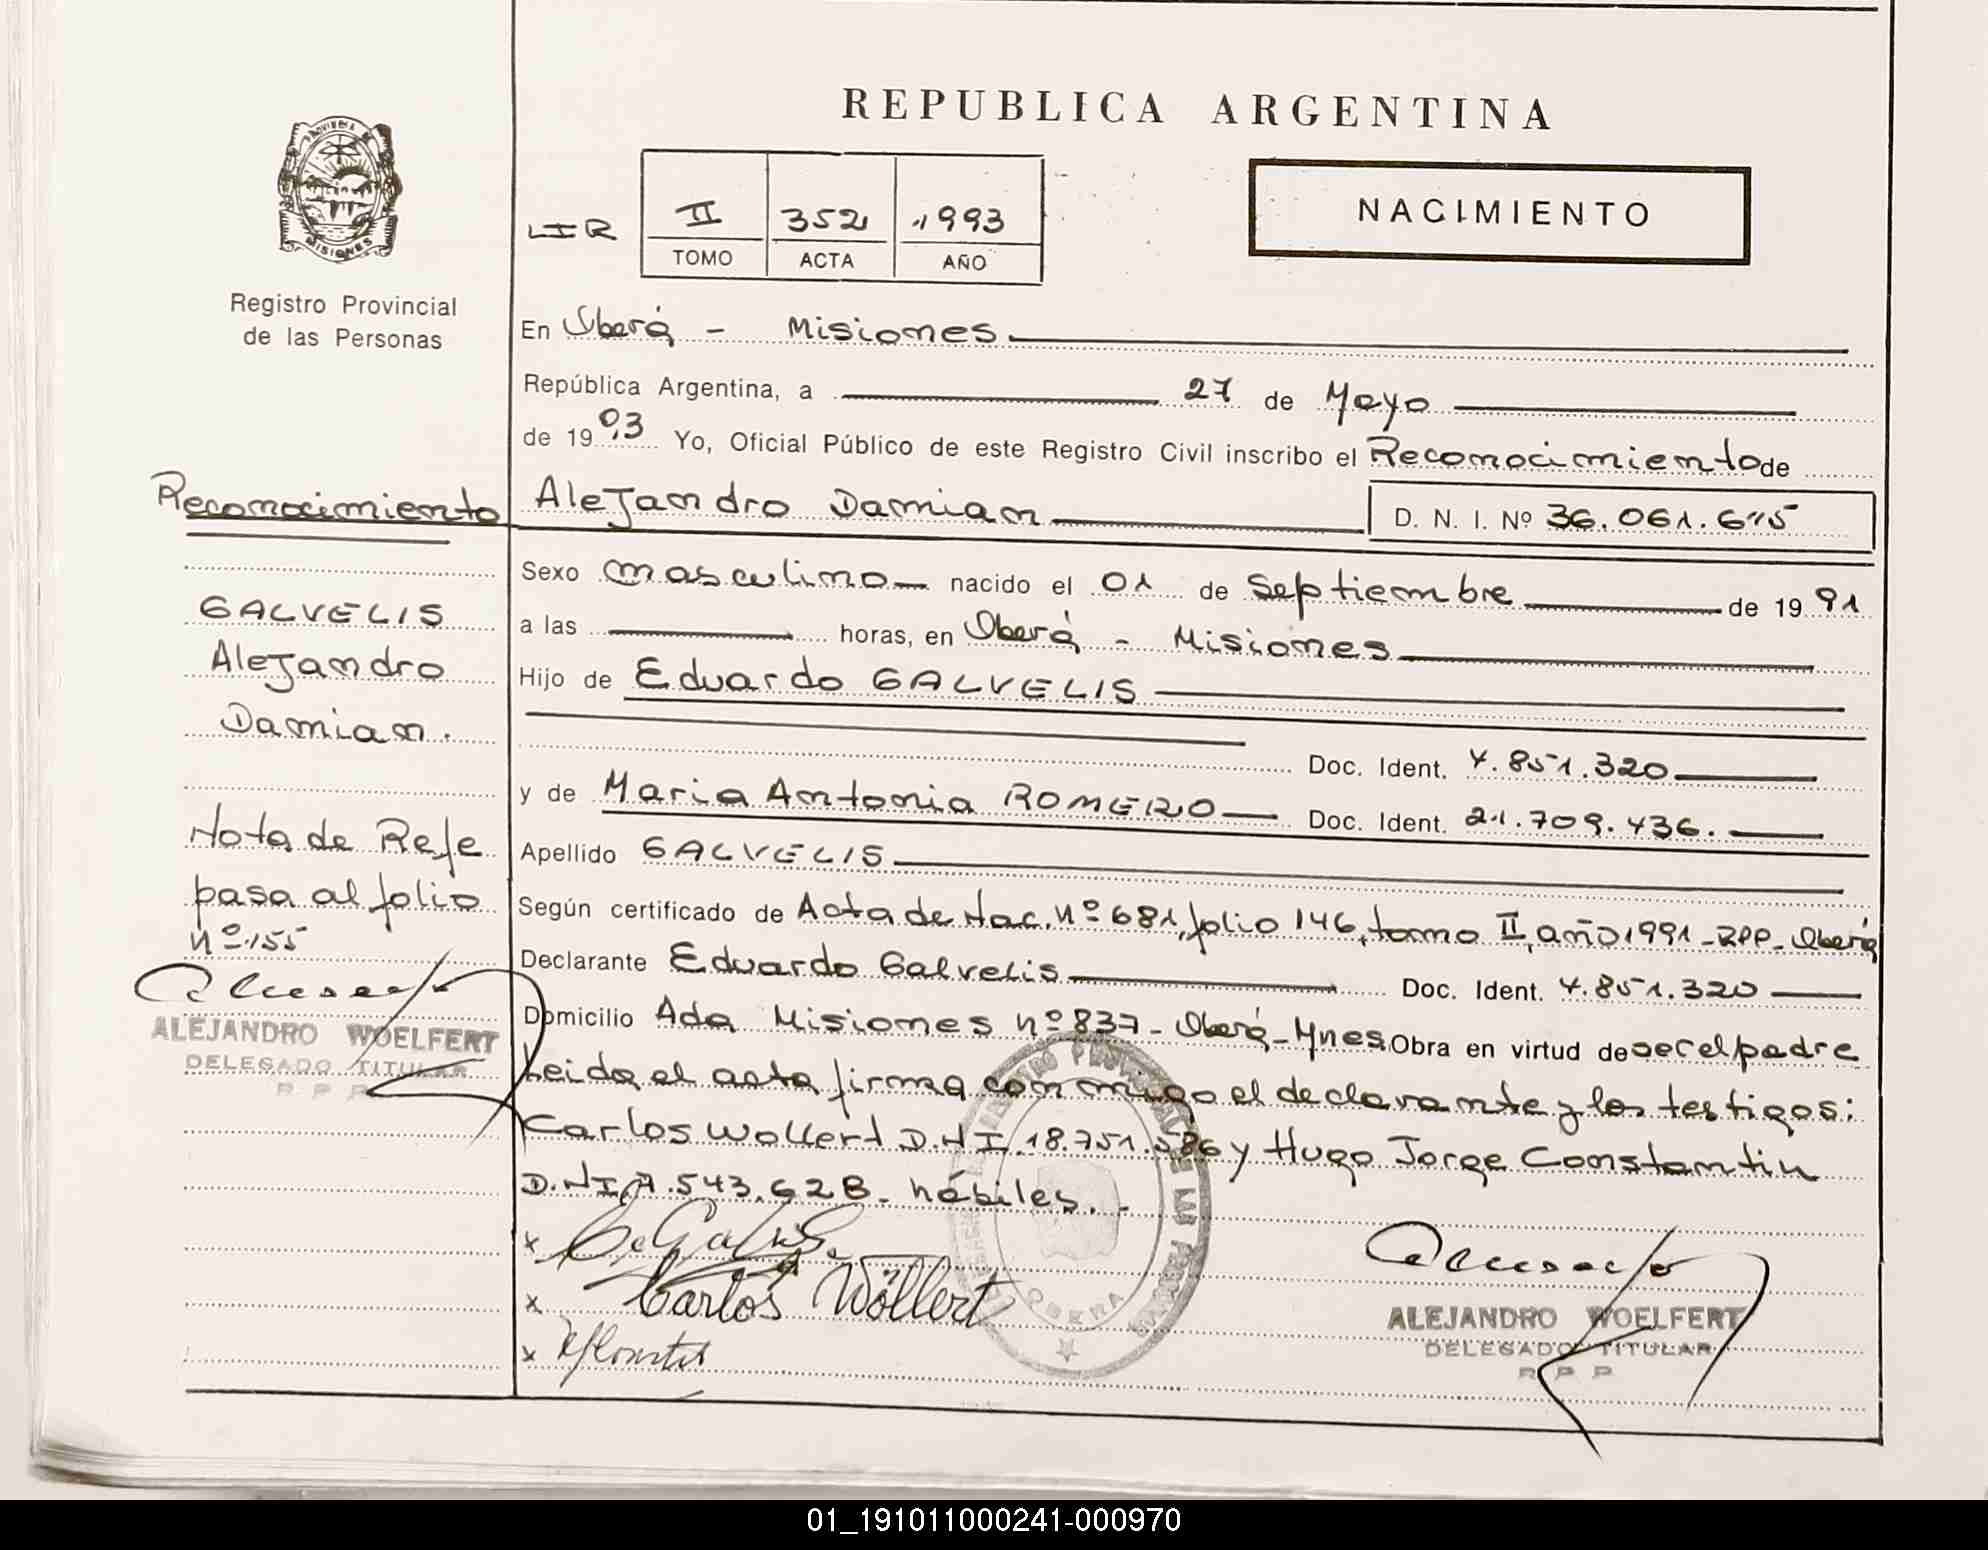 REPUBLICA ARGENTINA
PROVINCIA DE
MISIONES
Registro Provincial
de las Personas
LIR
II 352 1993
TOMO ACTA AÑO
NACIMIENTO
En Oberá - Misiones
República Argentina, a 27 de Mayo
de 1993 Yo, Oficial Público de este Registro Civil inscribo el Reconocimiento de
Alejandro Damian D. N. I. Nº 36.061.615
Sexo masculino nacido el 01 de Septiembre de 1991
a las horas, en Oberá - Misiones
Hijo de Eduardo GALVELIS
Doc. Ident. 4.851.320
y de Maria Antonia ROMERO Doc. Ident. 21.709.436.
Apellido GALVELIS
Según certificado de Acta de Nac. Nº 681, folio 146, tomo II, año 1991 - RPP - Oberá
Declarante Eduardo Galvelis Doc. Ident. 4.851.320
Domicilio Ada Misiones Nº 837 - Oberá - Mnes Obra en virtud de ser el padre
Leida el acta firma conmigo el declarante y los testigos:
Carlos Wollert D.N.I. 18.751.586 y Hugo Jorge Constantin
D.N.I. 7.543.628 - hábiles. -
x
x Carlos Wöllert
x
OBERA
ALEJANDRO WOELFERT
DELEGADO TITULAR
R P P
Reconocimiento
GALVELIS
Alejandro
Damian.
Nota de Refe
pasa al folio
Nº 155
ALEJANDRO WOELFERT
DELEGADO TITULAR
R P P
01_191011000241-000970